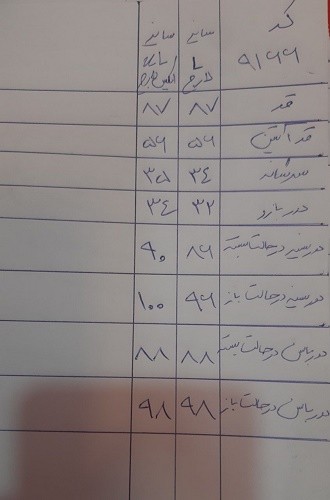 کد ۹۱۶۶ سایز L سایز
قد ۸۷ ۸۷
قد آستین ۵۶ ۵۶
سرشانه ۳۴ ۳۵
دور بازو ۳۲ ۳۴
دور سینه در حالت بسته ۸۶ ۹۰
دور سینه در حالت باز ۹۶ ۱۰۰
دور باسن در حالت بسته ۸۸ ۸۸
دور باسن در حالت باز ۹۸ ۹۸